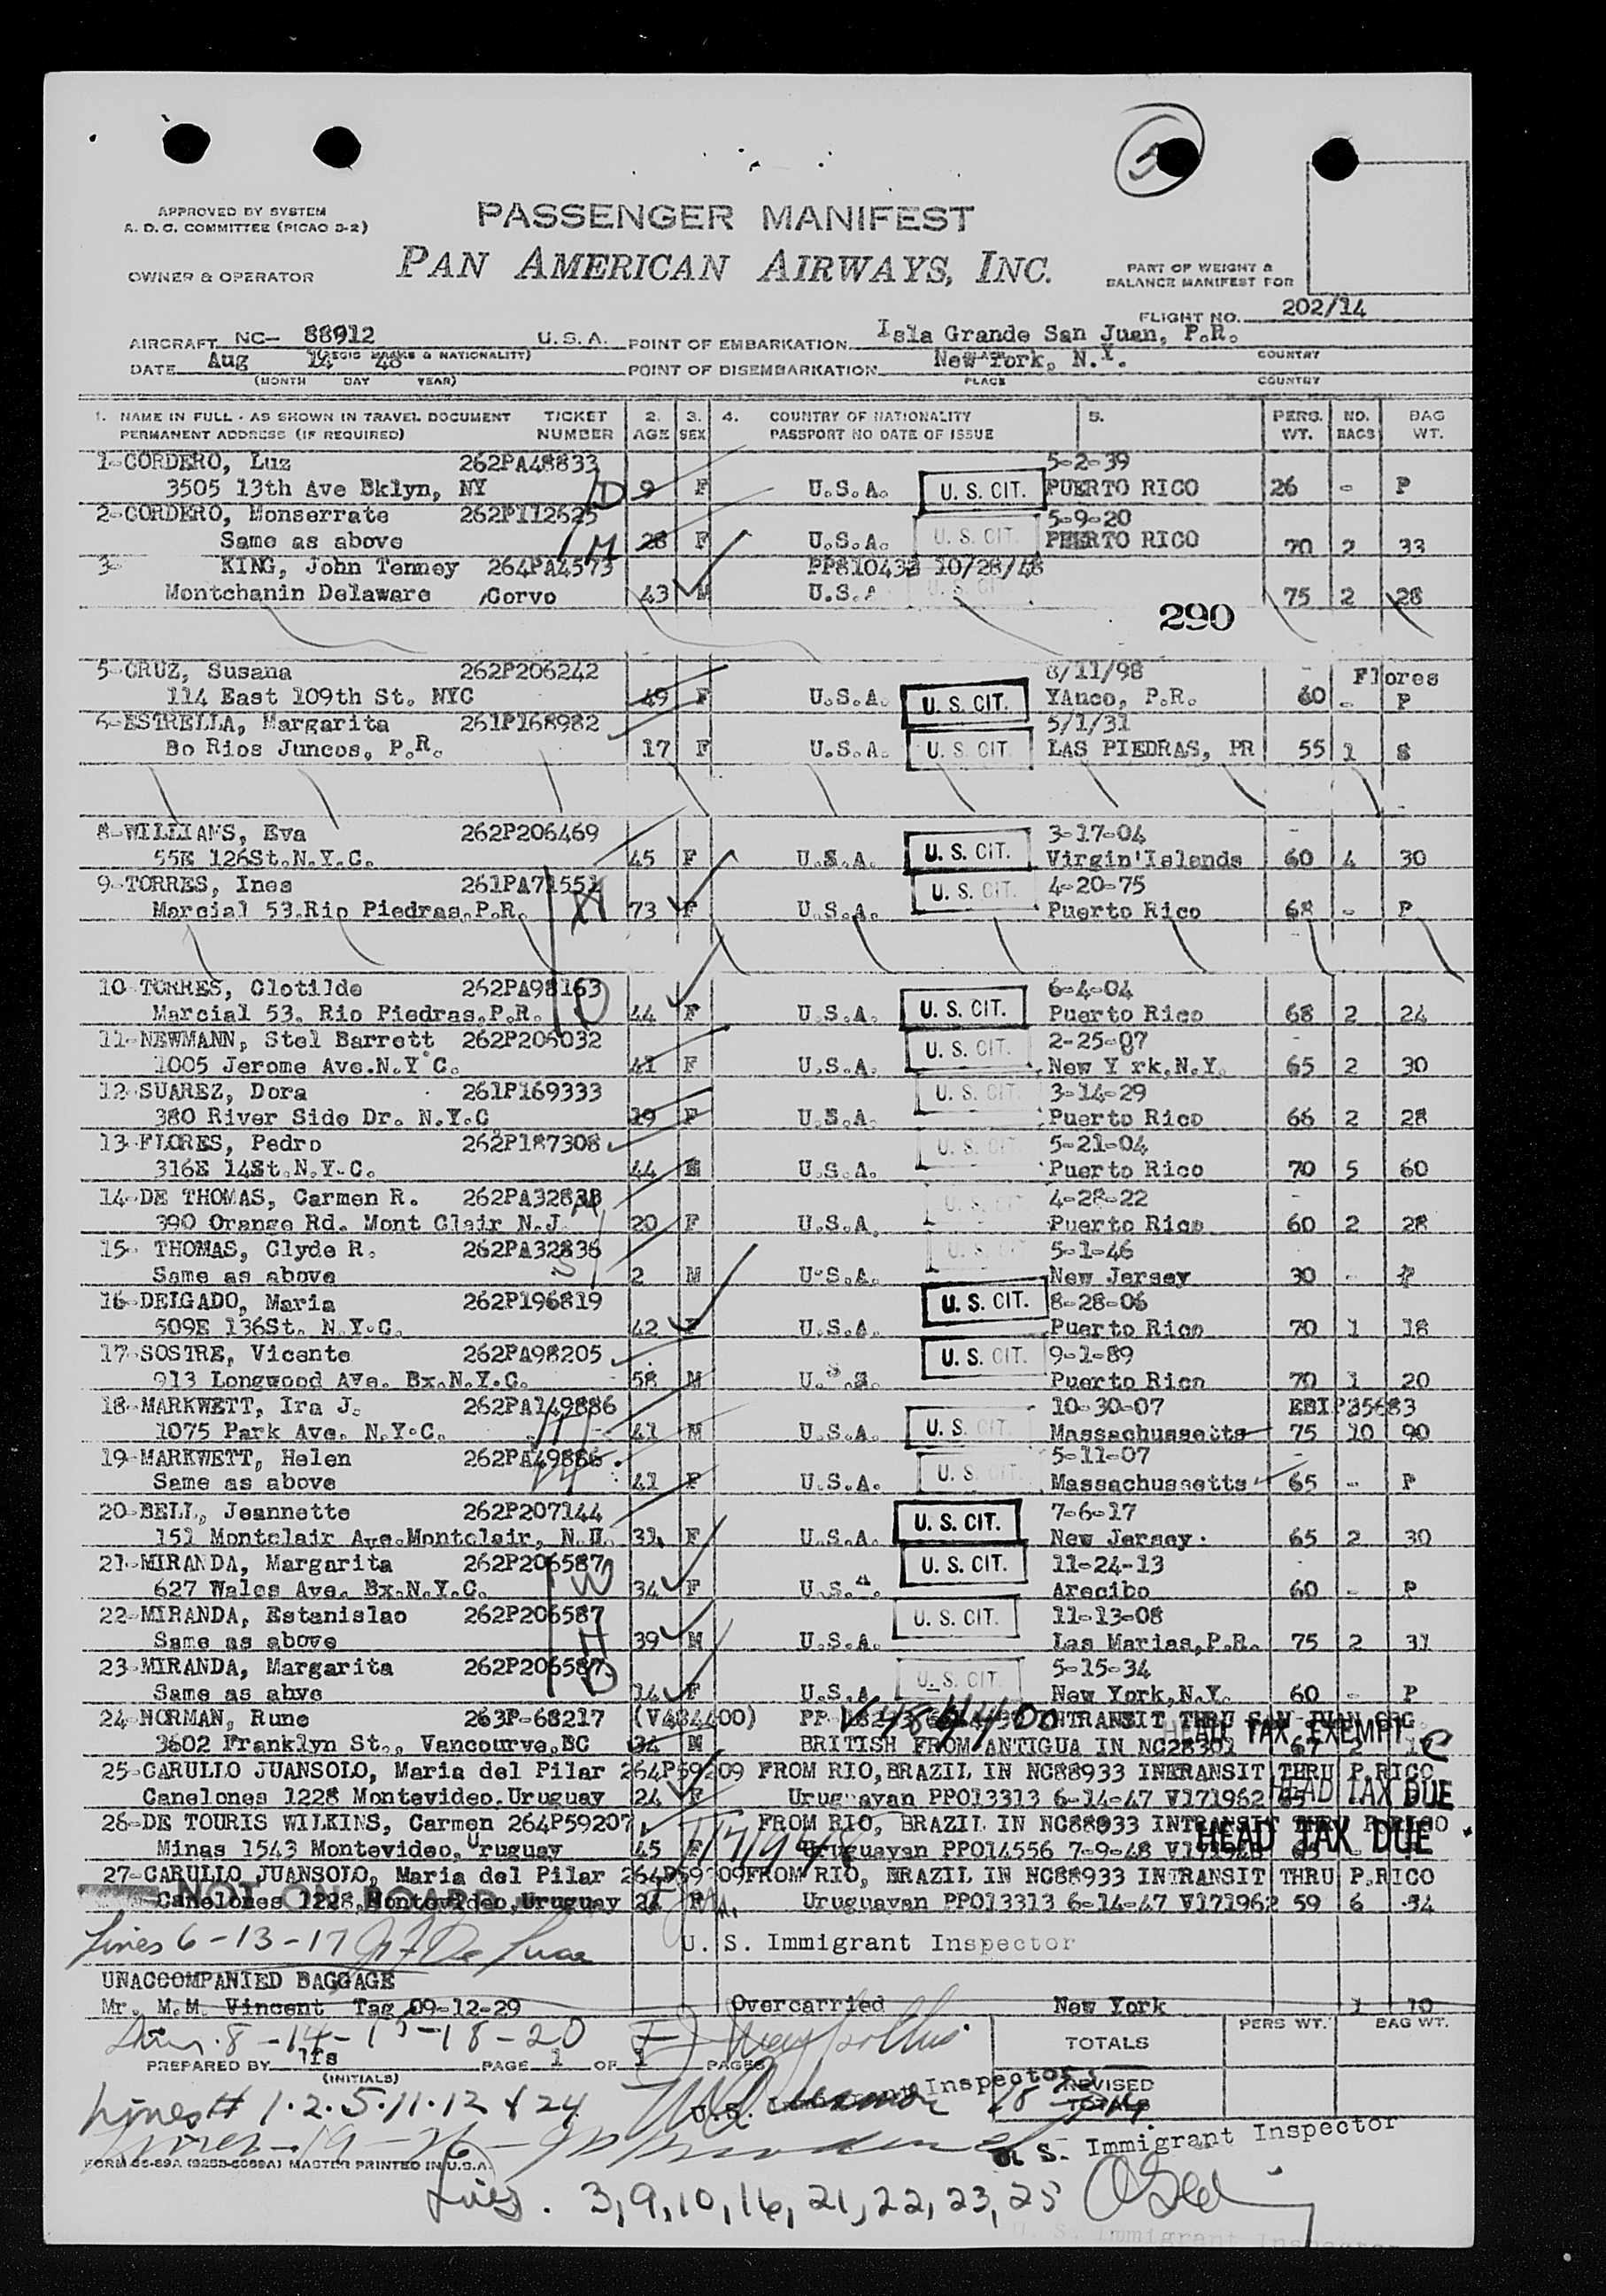 5
APPROVED BY SYSTEM
A. D. C. COMMITTEE (PICAO 3-2)
PASSENGER MANIFEST
PAN AMERICAN AIRWAYS, INC.
OWNER & OPERATOR
PART OF WEIGHT &
BALANCE MANIFEST FOR
FLIGHT NO. 202/14
AIRCRAFT NC- 88912 U.S.A. POINT OF EMBARKATION Isla Grande San Juan, P.R.
(REGIS MARKS & NATIONALITY) PLACE COUNTRY
DATE Aug 14 48 POINT OF DISEMBARKATION New York, N.Y.
(MONTH DAY YEAR) PLACE COUNTRY
1. NAME IN FULL - AS SHOWN IN TRAVEL DOCUMENT TICKET 2. 3. 4. COUNTRY OF NATIONALITY 5. PERS. NO. BAG
PERMANENT ADDRESS (IF REQUIRED) NUMBER AGE SEX PASSPORT NO DATE OF ISSUE WT. BAGS WT.
1-CORDERO, Luz 262PA48833 5-2-39
3505 13th Ave Bklyn, NY D 9 F U.S.A. U. S. CIT. PUERTO RICO 26 - P
2-CORDERO, Monserrate 262P112625 5-9-20
Same as above M 28 F U.S.A. U. S. CIT. PUERTO RICO 70 2 33
3- KING, John Tenney 264PA4573 PP810432 10/28/48
Montchanin Delaware /Corvo 43 M U.S.A U. S. CIT 75 2 28
290
5-CRUZ, Susana 262P206242 8/11/98 - Flores
114 East 109th St. NYC 49 F U.S.A. U. S. CIT. YAuco, P.R. 60 - P
6-ESTRELLA, Margarita 261P168982 5/1/31
Bo Rios Juncos, P.R. 17 F U.S.A. U. S. CIT. LAS PIEDRAS, PR 55 1 8
8-WILLIAMS, Eva 262P206469 3-17-04 -
55E 126St.N.Y.C. 45 F U.S.A. U. S. CIT. Virgin'Islands 60 4 30
9-TORRES, Ines 261PA71551 4-20-75
Marcial 53.Rio Piedras.P.R. 73 F U.S.A. U. S. CIT. Puerto Rico 68 - P
10-TORRES, Clotilde 262PA98163 6-4-04
Marcial 53. Rio Piedras.P.R. D 44 F U.S.A. U. S. CIT. Puerto Rico 68 2 24
11-NEWMANN, Stel Barrett 262P205032 2-25-07 -
1005 Jerome Ave.N.Y C. 41 F U.S.A. U. S. CIT. New Y rk,N.Y. 65 2 30
12-SUAREZ, Dora 261P169333 3-14-29
380 River Side Dr. N.Y.C 19 F U.S.A. U. S. CIT Puerto Rico 66 2 28
13-FLORES, Pedro 262P187308 5-21-04
316E 14St.N.Y.C. 44 M U.S.A. U. S. CIT Puerto Rico 70 5 60
14-DE THOMAS, Carmen R. 262PA32838 4-28-22 -
390 Orange Rd. Mont Clair N.J. 20 F U.S.A. U. S. CIT Puerto Rico 60 2 28
15- THOMAS, Clyde R. 262PA32836 5-1-46
Same as above 2 M U.S.A. U. S. CIT New Jersey 30 - P
16-DELGADO, Maria 262P196819 8-28-06
509E 136St. N.Y.C. 42 F U.S.A. U. S. CIT. Puerto Rico 70 1 18
17-SOSTRE, Vicente 262PA98205 9-1-89
913 Longwood Ave. Bx.N.Y.C. 58 M U.S.A. U. S. CIT. Puerto Rico 70 1 20
18-MARKWETT, Ira J. 262PA149886 10-30-07 EBIP35683
1075 Park Ave. N.Y.C. 41 M U.S.A. U. S. CIT Massachussetts 75 10 90
19-MARKWETT, Helen 262PA49886 5-11-07 -
Same as above 41 F U.S.A. U. S. CIT. Massachussetts 65 - P
20-BELL, Jeannette 262P207144 7-6-17
151 Montclair Ave.Montclair, N.J. 31 F U.S.A. U. S. CIT. New Jersey. 65 2 30
21-MIRANDA, Margarita 262P206587 11-24-13 -
627 Wales Ave. Bx.N.Y.C. W 34 F U.S.A. U. S. CIT. Arecibo 60 - P
22-MIRANDA, Estanislao 262P206587 11-13-08
Same as above H 39 M U.S.A. U. S. CIT. Las Marias,P.R. 75 2 31
23-MIRANDA, Margarita 262P206587 5-15-34
Same as abve D 14 F U.S.A U. S. CIT. New York,N.Y. 60 - P
24-NORMAN, Rune 263P-68217 (V484400) PP V484400 INTRANSIT THRU SAN JUAN
3602 Franklyn St., Vancourve,BC 34 M BRITISH FROM ANTIGUA IN NC28301 67 2 HEAD TAX EXEMPT
25-CARULLO JUANSOLO, Maria del Pilar 264P59209 FROM RIO,BRAZIL IN NC88933 INTRANSIT THRU P.RICO
Canelones 1228 Montevideo.Uruguay 24 F Uruguayan PP013313 6-14-47 V171962 HEAD TAX DUE
26-DE TOURIS WILKINS, Carmen 264P59207 FROM RIO, BRAZIL IN NC88933 INTRANSIT THRU P.RICO
Minas 1543 Montevideo, Uruguay 45 F V171948 Uruguayan PP014556 7-9-48 HEAD TAX DUE
27-CARULLO JUANSOLO, Maria del Pilar 264P59209FROM RIO, BRAZIL IN NC88933 INTRANSIT THRU P.RICO
NOT ON BOARD Canelones 1228,Montevideo,Uruguay 24 F Uruguayan PP013313 6-14-47 V171962 59 6 54
Lines 6-13-17
U. S. Immigrant Inspector
UNACCOMPANIED BAGGAGE
Mr. M.M. Vincent Tag 09-12-29 Overcarried New York 1 10
8-14-15-18-20
TOTALS PERS WT. BAG WT.
PREPARED BY lfs PAGE 1 OF 1 PAGES
(INITIALS)
REVISED
TOTALS
Lines # 1.2.5.11.12 & 24
U. S. Immigrant Inspector
Lines - 19 - 26 -
U. S. Immigrant Inspector
FORM 86-89A (9253-5069A) MASTER PRINTED IN U.S.A.
Lines. 3,9,10,16,21,22,23,25
U. S. Immigrant Inspector